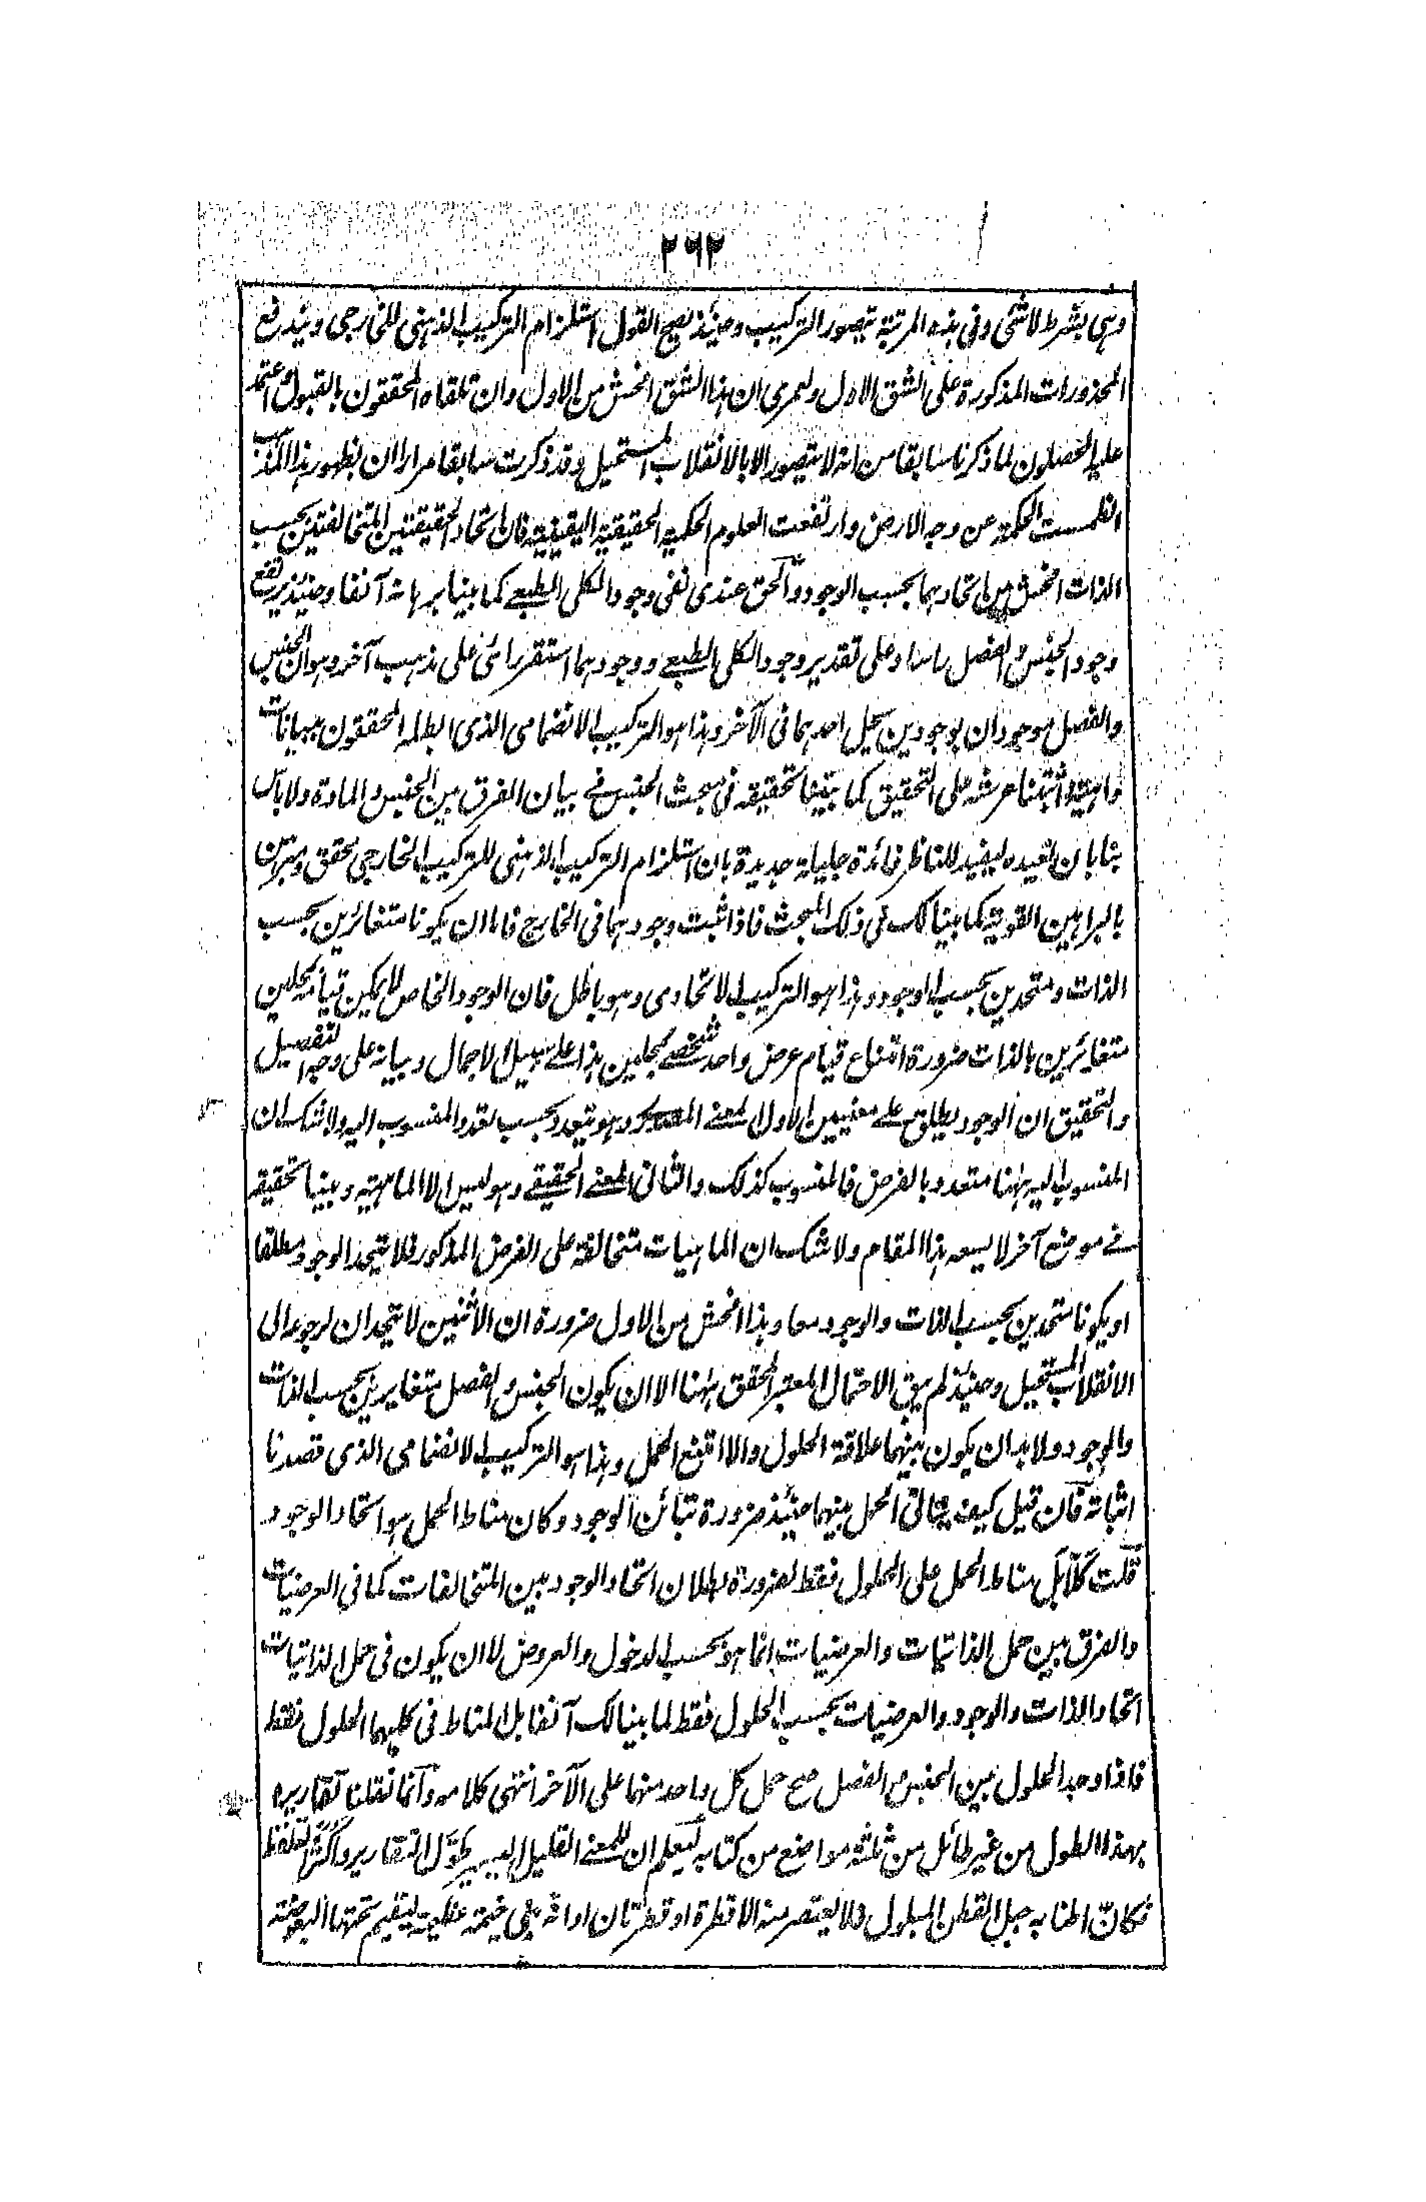 ٢٦٢
وهي بشرط لا شئ وفى هذه المرتبة يتصور التركيب وحينئذ يصح القول استلزام التركيب الذهنى للخارجى ويندفع
المحذورات المذكورة على الشق الاول ولعمرى ان هذا الشق افحش من الاول وان تلقاه المحققون بالقبول واعتمد
عليه المحصلون لما ذكرنا سابقا من انه لا يتصور الا بالانقلاب المستحيل وقد ذكرت سابقا مرارا ان بظهور هذا المذهب
انطمست الحكمة عن وجه الارض وارتفعت العلوم الحكمية الحقيقية اليقينية فان اتحاد الحقيقتين المتخالفتين بحسب
الذات افحش من اتحادهما بحسب الوجود والحق عندى نفى وجود الكلى الطبعے كما بينا برهانه آنفا وحينئذ يرتفع
وجود الجنس والفصل راسا وعلى تقدير وجود الكلى الطبعے ووجودهما استقر رائى على مذهب آخر وهو ان الجنس
والفصل موجودان بوجودين يحل احدهما فى الآخر وهذا هو التركيب الانضمامى الذى ابطله المحققون ببيانات
واهية واثبتنا عرشه على التحقيق كما بينا تحقيقه فى مبحث الجنس فے بيان الفرق بين الجنس والمادة ولا باس
بنا بان نعيده ليفيد للناظر فائدة جليلة جديدة بان استلزام التركيب الذهنى للتركيب الخارجى محقق ومبرهن
بالبراهين القوية كما بينا لك فى ذلك المبحث فاذا ثبت وجودهما فى الخارج فاما ان يكونا متغائرين بحسب
الذات ومتحدين بحسب الوجود وهذا هو التركيب الاتحادى وهو باطل فان الوجود الخاص لا يمكن قيامه بمحلين
متغائرين بالذات ضرورة امتناع قيام عرض واحد شخصے بمحلين هذا علے سبيل الاجمال وبيانه على وجه التفصيل
والتحقيق ان الوجود يطلق علے معنيين الاول المعنے المصدرى وهو يتعدد بحسب تعدد المنسوب اليه ولا شك ان
المنسوب اليه ههنا متعدد بالفرض فالمنسوب كذلك والثانى المعنے الحقيقے وهو ليس الا الماهية وبينا تحقيقه
فے موضع آخر لا يسعه هذا المقام ولا شك ان الماهيات متخالفة على الفرض المذكور فلا يتحد الوجود مطلقا
او يكونا متحدين بحسب الذات والوجود معا وهذا افحش من الاول ضرورة ان الاثنين لا يتحدان لرجوعه الى
الانقلاب المستحيل وحينئذ لم يبق الاحتمال المعتبر المحقق ههنا الا ان يكون الجنس والفصل متغايرين بحسب الذات
والوجود ولا بد ان يكون بينهما علاقة الحلول والا امتنع الحمل وهذا هو التركيب الانضمامى الذى قصدنا
اثباته فان قيل كيف يتاتى الحمل بينهما حينئذ ضرورة تبائن الوجود وكان مناط الحمل هو اتحاد الوجود
قلت كلا بل مناط الحمل على الحلول فقط لضرورة بطلان اتحاد الوجود بين المتخالفات كما فى العرضيات
والفرق بين حمل الذاتيات والعرضيات انما هو بحسب الدخول والعروض لا ان يكون فى حمل الذاتيات
اتحاد الذات والوجود والعرضيات بحسب الحلول فقط لما بينا لك آنفا بل المناط فى كليهما الحلول فقط
فاذا وجد الحلول بين الجنس والفصل صح حمل كل واحد منهما على الآخر انتهى كلامه وانما نقلنا تقاريره
بهذا الطول من غير طائل من ثلثة مواضع من كتابه ليعلم ان للمعنے القليل اليسير يطول التقارير واكثر التلفظ
فكان اطنابه جبل القطن المبلول فلا يعتصر منه الا قطرة او قطرتان او انه يلى خيمة عظيمة ليقيم تحتها البعوضة